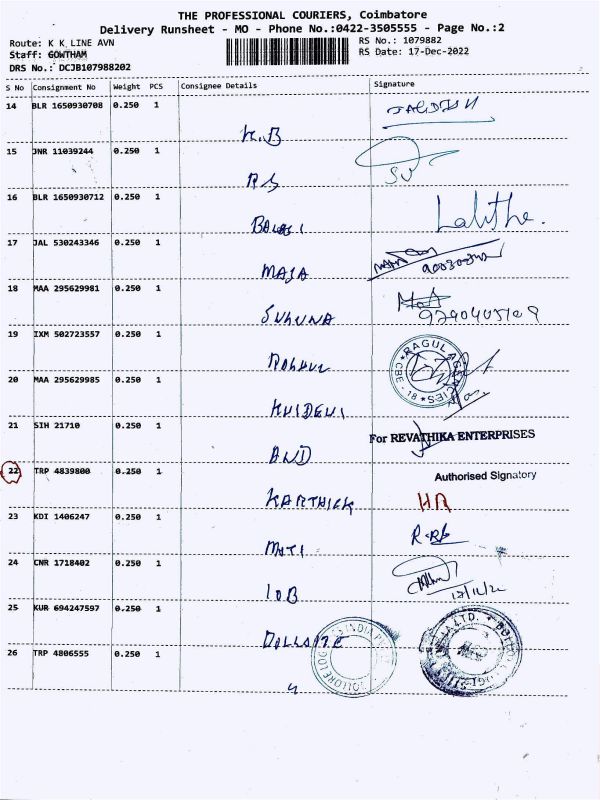 THE PROFESSIONAL COURIERS, Coimbatore
Delivery Runsheet - MO - Phone No.:0422-3505555 - Page No.:2
Route: K K LINE AVN
RS No.: 1079882
Staff: GOWTHAM
RS Date: 17-Dec-2022
DRS No.: DCJB107988202
S No Consignment No Weight PCS Consignee Details Signature
14 BLR 1650930708 0.250 1
K.B
15 JNR 11039244 0.250 1
RS
SU
16 BLR 1650930712 0.250 1
BALAJI Lalithe.
17 JAL 530243346 0.250 1
MAJA
18 MAA 295629981 0.250 1
SUGUNA
19 IXM 502723557 0.250 1
RAGUL AGENCIES
CBE - 18
20 MAA 295629985 0.250 1
21 SIH 21710 0.250 1
For REVATHIKA ENTERPRISES
AND
22 TRP 4839800 0.250 1
Authorised Signatory
KARTHICK
23 KDI 1406247 0.250 1
MUTI
24 CNR 1718402 0.250 1
IOB
25 KUR 694247597 0.250 1
26 TRP 4806555 0.250 1
4